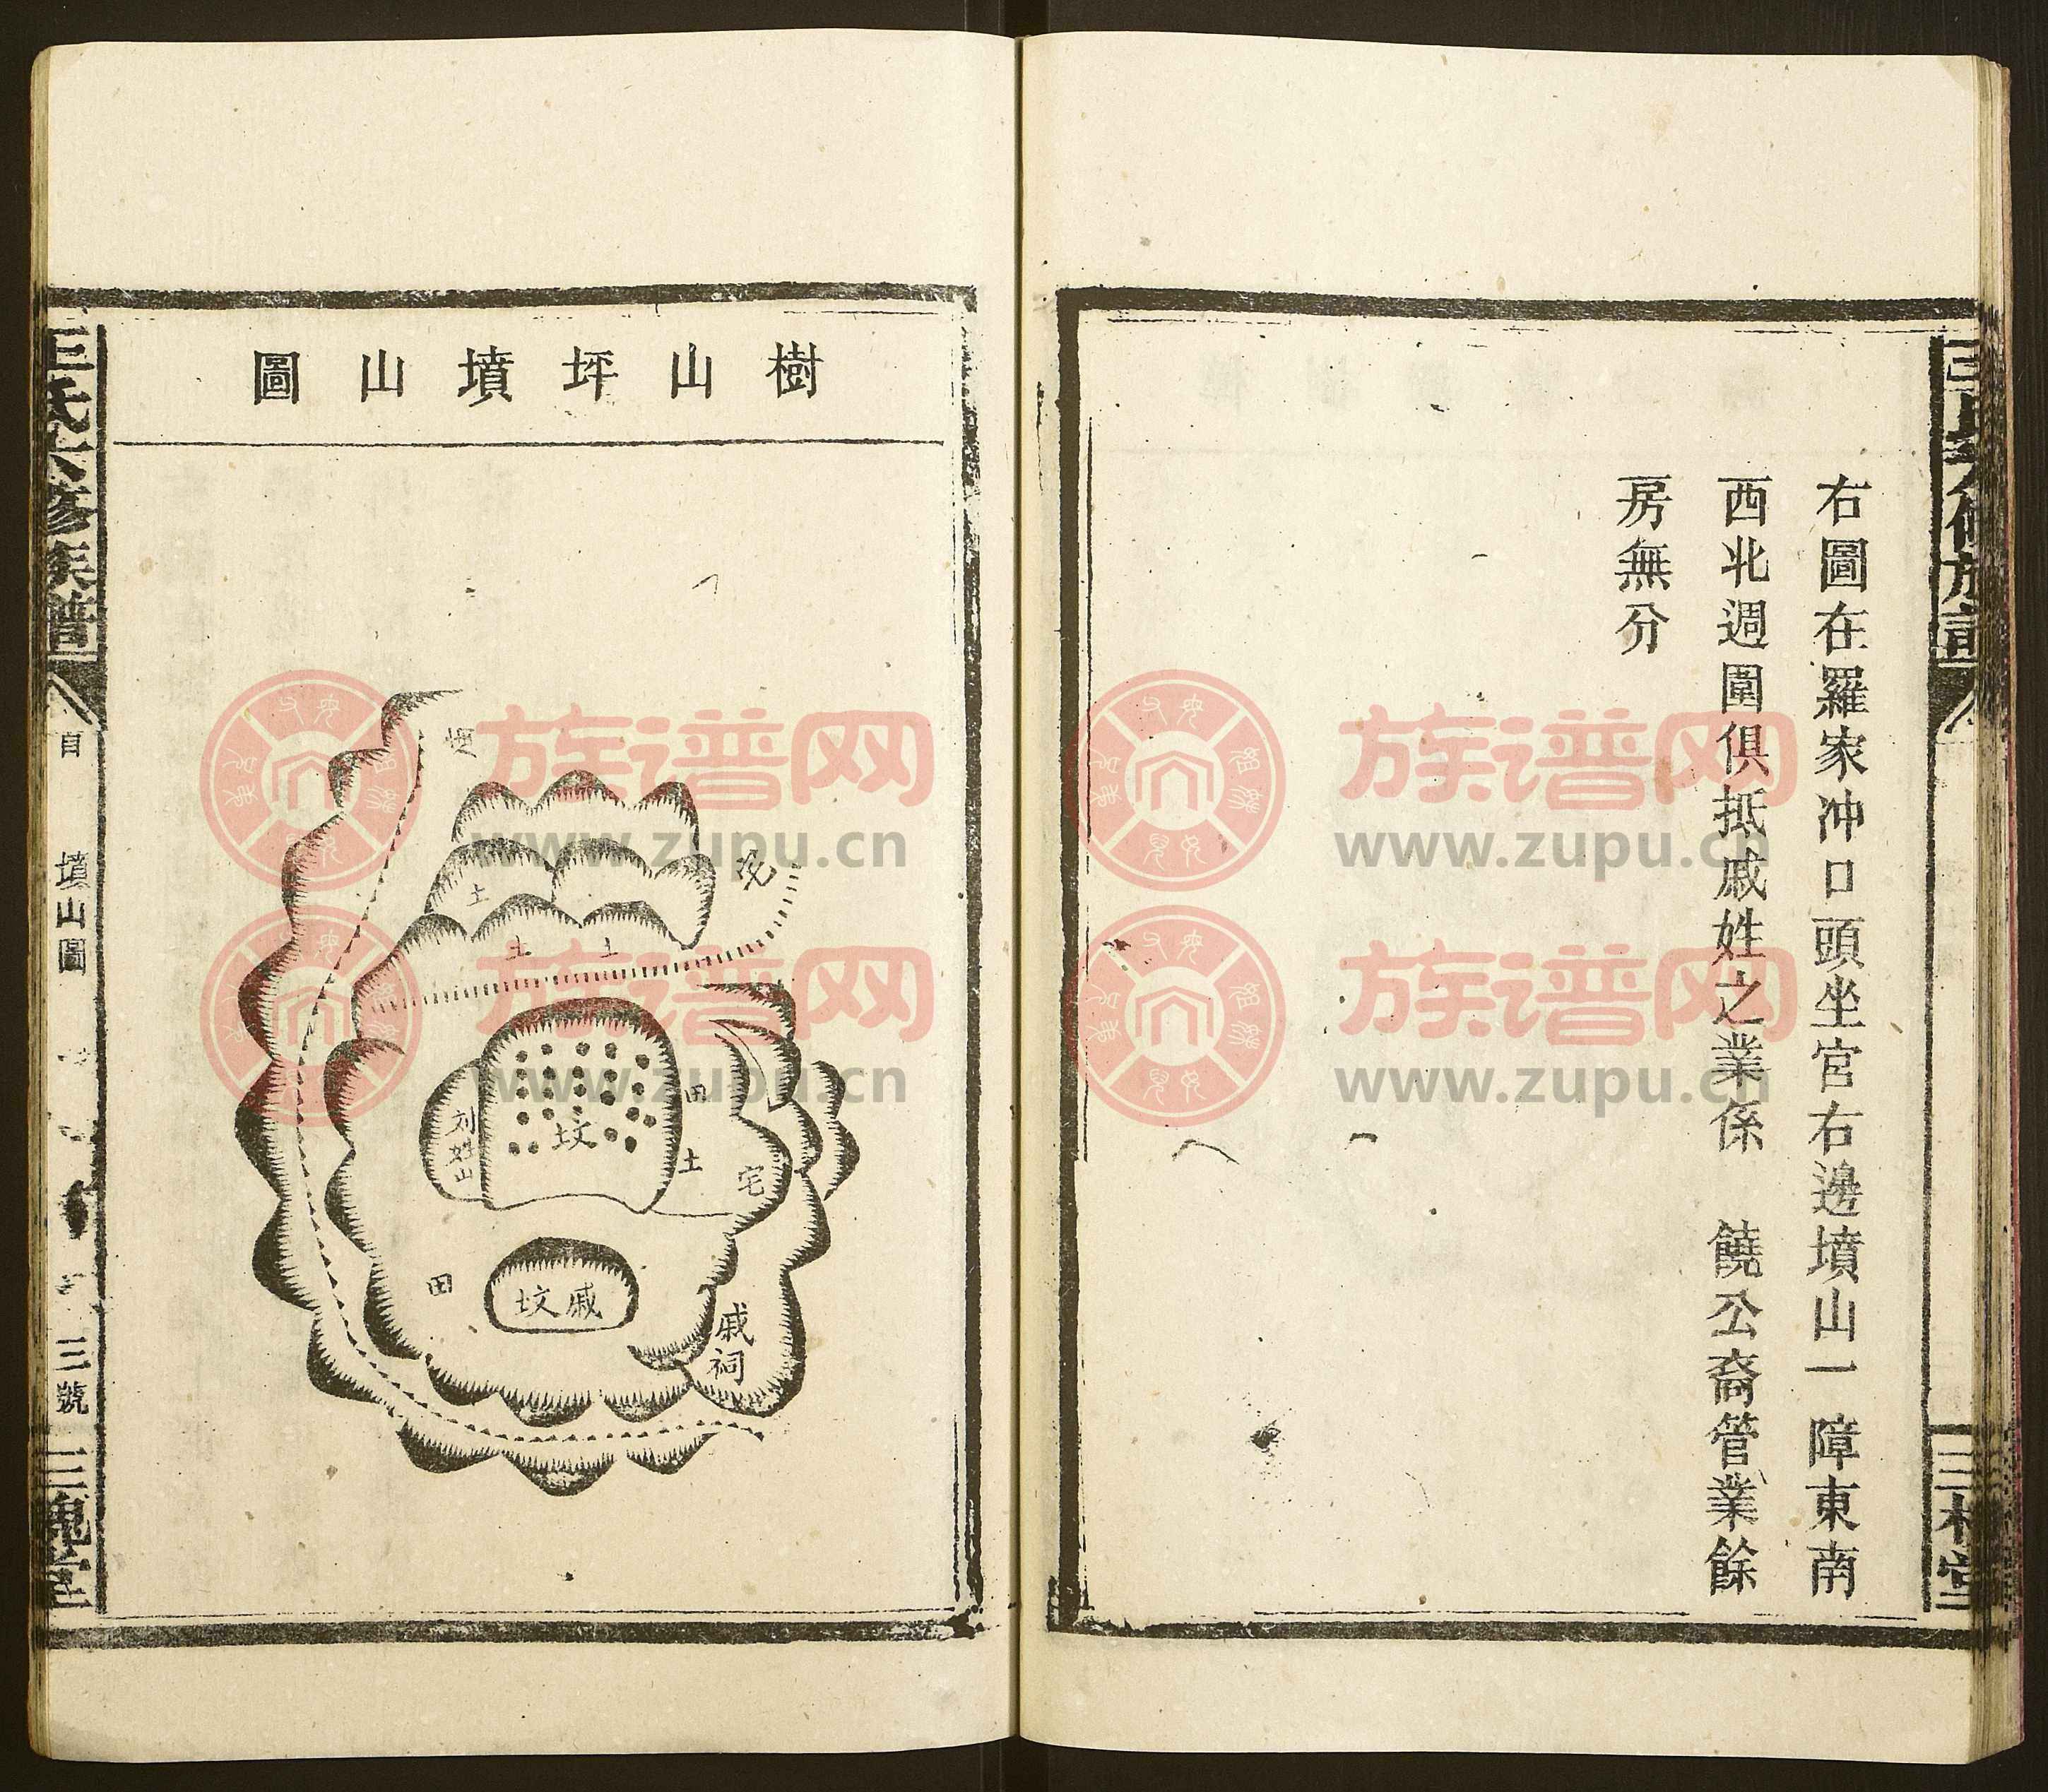 右圖在羅家冲口頭坐宮右邊墳山一障東南
西北週圍俱抵戚姓之業係　饒公裔管業餘
房無分
樹山坪墳山圖
土
土
土
坟
刘姓山
田
土
宅
田
戚坟
戚祠
王氏六修族譜
墳山圖
三號
三槐堂
族谱网
www.zupu.cn
族谱网
www.zupu.cn
族谱网
www.zupu.cn
族谱网
www.zupu.cn